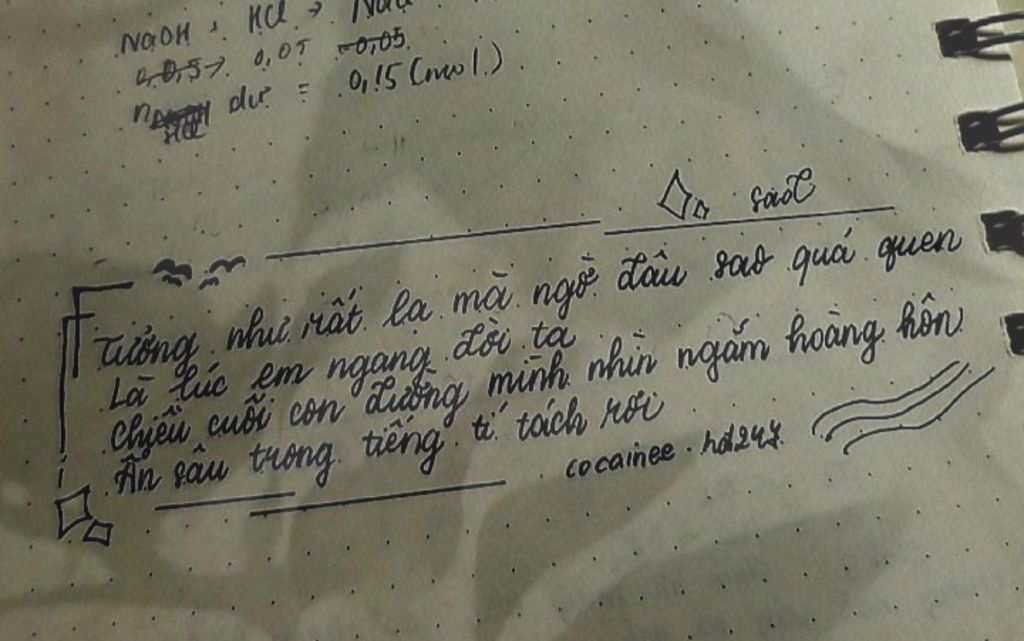 NaOH + HCl → NaCl
0,05 → 0,05 0,05
n HCl dư = 0,15 (mol)
sao
Tưởng như rất lạ mà ngờ đâu sao quá quen
Là lúc em ngang đời ta
Chiều cuối con đường mình nhìn ngắm hoàng hôn
Ẩn sâu trong tiếng tí tách rơi
cocainee.hd247